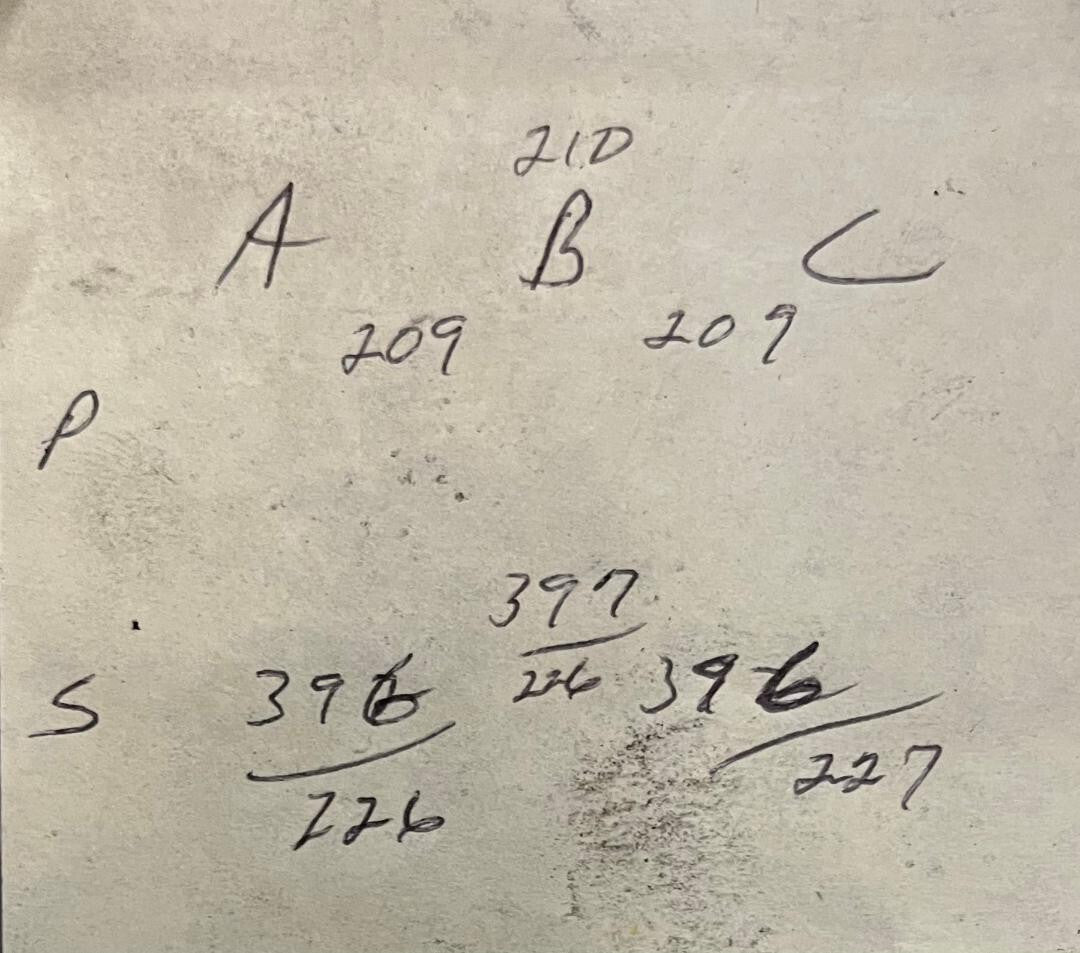 210
A B C
209 209
P
397
S 396 226 396
226 227